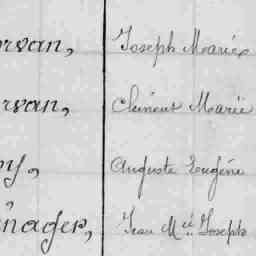 rvan, Joseph Marie
rvan, Clément Marie
y, Auguste Eugène
énager, Jean Mie Joseph